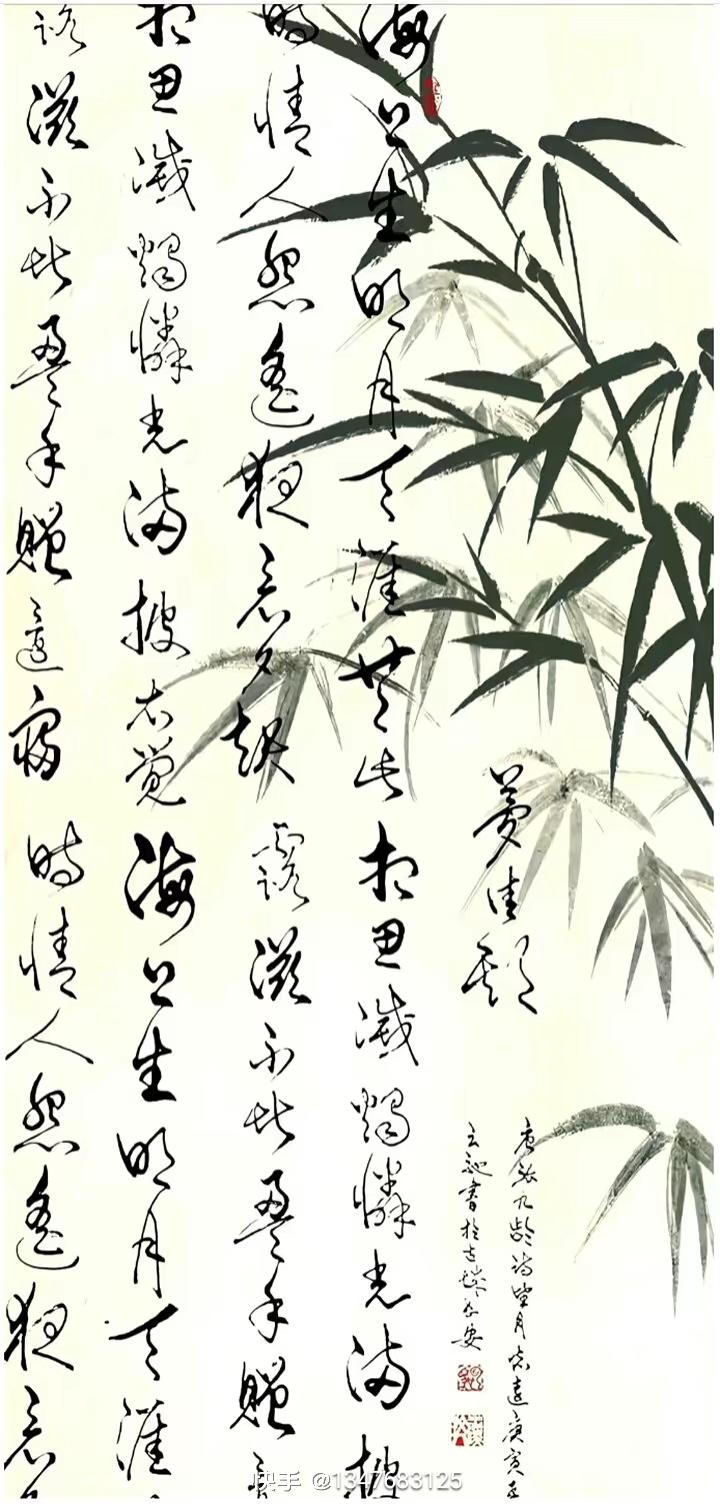 夢佳期
唐張九齡詩望月懷遠庚寅年
書於古城西安
海上生明月天涯共此相思滅燭憐光滿披
時情人怨遙夜竟夕起露滋不堪盈手贈
相思滅燭憐光滿披衣覺海上生明月天涯
露滋不堪盈手贈還寢時情人怨遙夜竟
快手 @1347683125